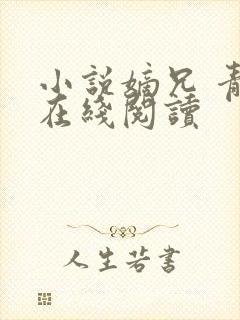 小説嫡兄 青
在綫閲讀
人生若書